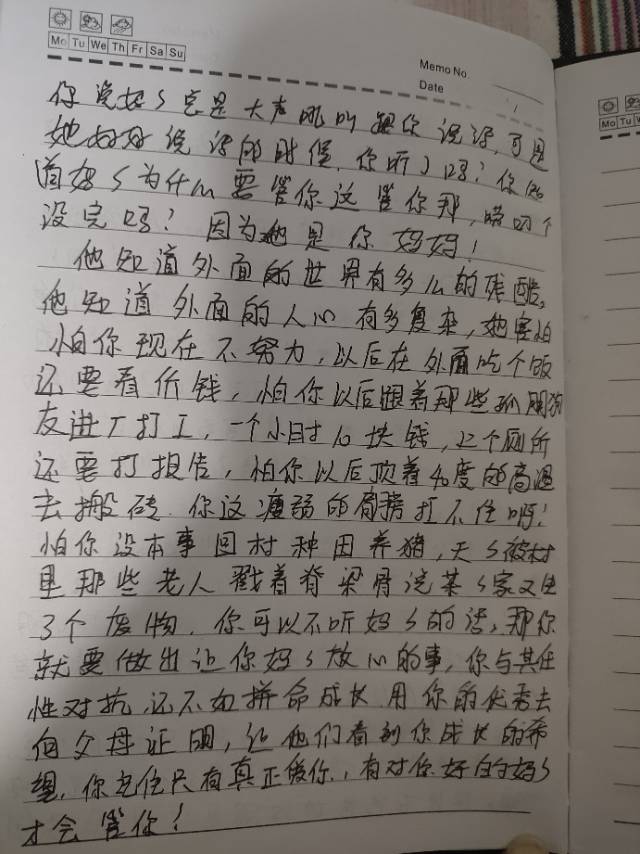 Mo Tu We Th Fr Sa Su
Memo No.
Date
你说妈ㄑ总是大声吼叫跟你说话,可是
她好好说话的时候,你听了吗?你知
道妈ㄑ为什么要管你这管你那,唠叨个
没完吗?因为她是你妈妈!
他知道外面的世界有多么的残酷,
他知道外面的人心有多复杂,她害怕
怕你现在不努力,以后在外面吃个饭
还要看价钱,怕你以后跟着那些狐朋狗
友进厂打工,一个小时10块钱,上个厕所
还要打报告,怕你以后顶着40度的高温
去搬砖.你这瘦弱的肩膀扛不住啊!
怕你没本事回村种田养猪,天ㄑ被村
里那些老人戳着脊梁骨说某ㄑ家又出
了个废物.你可以不听妈ㄑ的话,那你
就要做出让你妈ㄑ放心的事,你与其任
性对抗,还不如拼命成长用你的优秀去
向父母证明,让他们看到你成长的希
望,你记住只有真正爱你,有对你好的妈ㄑ
才会管你!
Mo Tu